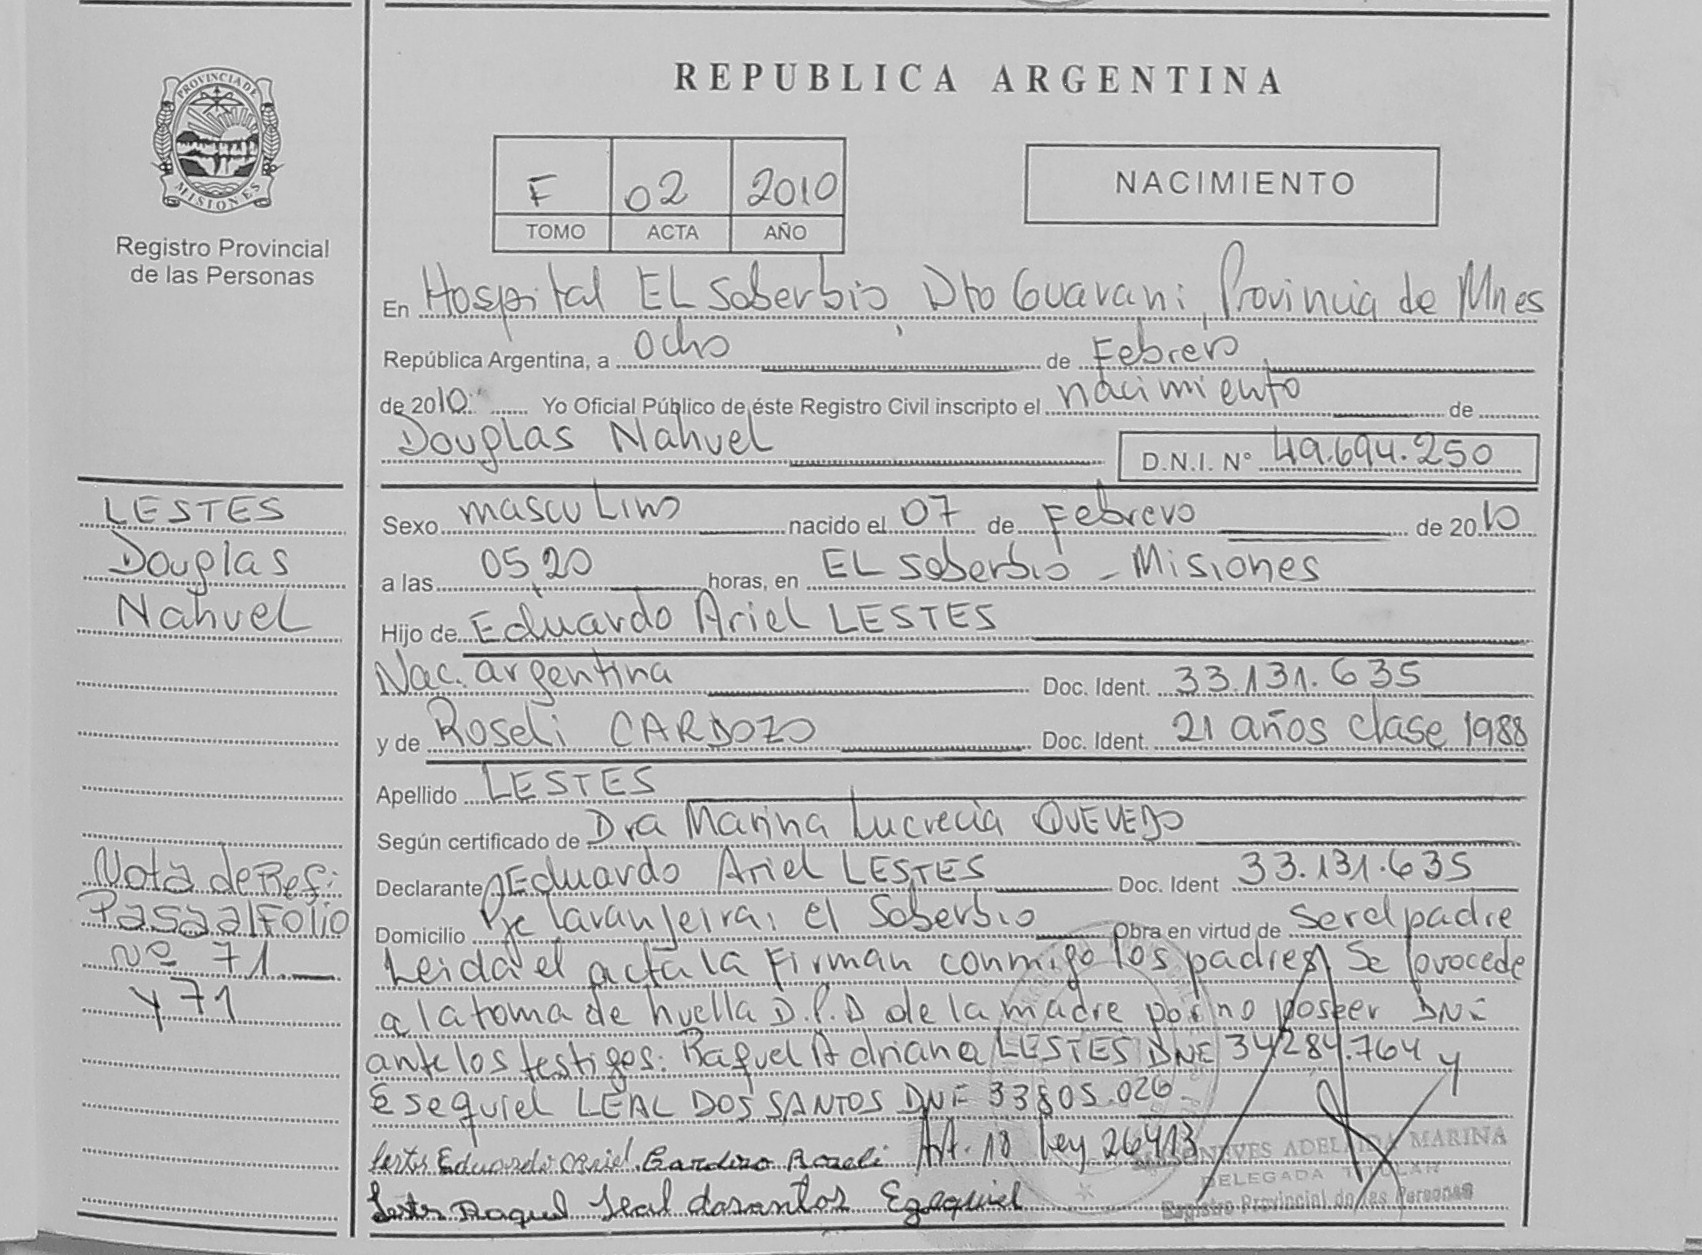 PROVINCIA DE
MISIONES
Registro Provincial
de las Personas
REPUBLICA ARGENTINA
F 02 2010
TOMO ACTA AÑO
NACIMIENTO
En Hospital EL Soberbio, Dto Guarani, Provincia de Mnes
República Argentina, a ocho de Febrero
de 2010 Yo Oficial Público de éste Registro Civil inscripto el nacimiento de
Douglas Nahuel D.N.I. N° 49.694.250
LESTES
Douglas
Nahuel
Sexo masculino nacido el 07 de Febrero de 2010
a las 05,20 horas, en EL Soberbio - Misiones
Hijo de Eduardo Ariel LESTES
Nac. argentina Doc. Ident. 33.131.635
y de Roseli CARDOZO Doc. Ident. 21 años clase 1988
Apellido LESTES
Según certificado de Dra Marina Lucrecia QUEVEDO
Declarante Eduardo Ariel LESTES Doc. Ident 33.131.635
Domicilio Pje Laranjeira, el Soberbio Obra en virtud de ser el padre
Nota de Ref:
Pasa al Folio
nº 71
y 71
Leida el acta la Firman conmigo los padres, Se procede
a la toma de huella D.P.D de la madre por no poseer DNI
ante los testigos: Raquel Adriana LESTES DNI 34284.764 y
Esequiel LEAL DOS SANTOS DNI 33805.026
Lestes Eduardo Ariel. Cardozo Roseli Art. 18 Ley 26413
Lestes Raquel Leal dosantos Ezequiel
NEVES ADELAIDA MARINA
DELEGADA TITULAR
Registro Provincial de las Personas